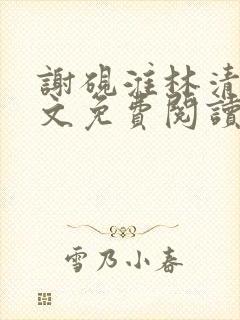 謝硯淮林清
文免費閱讀
雪乃小春